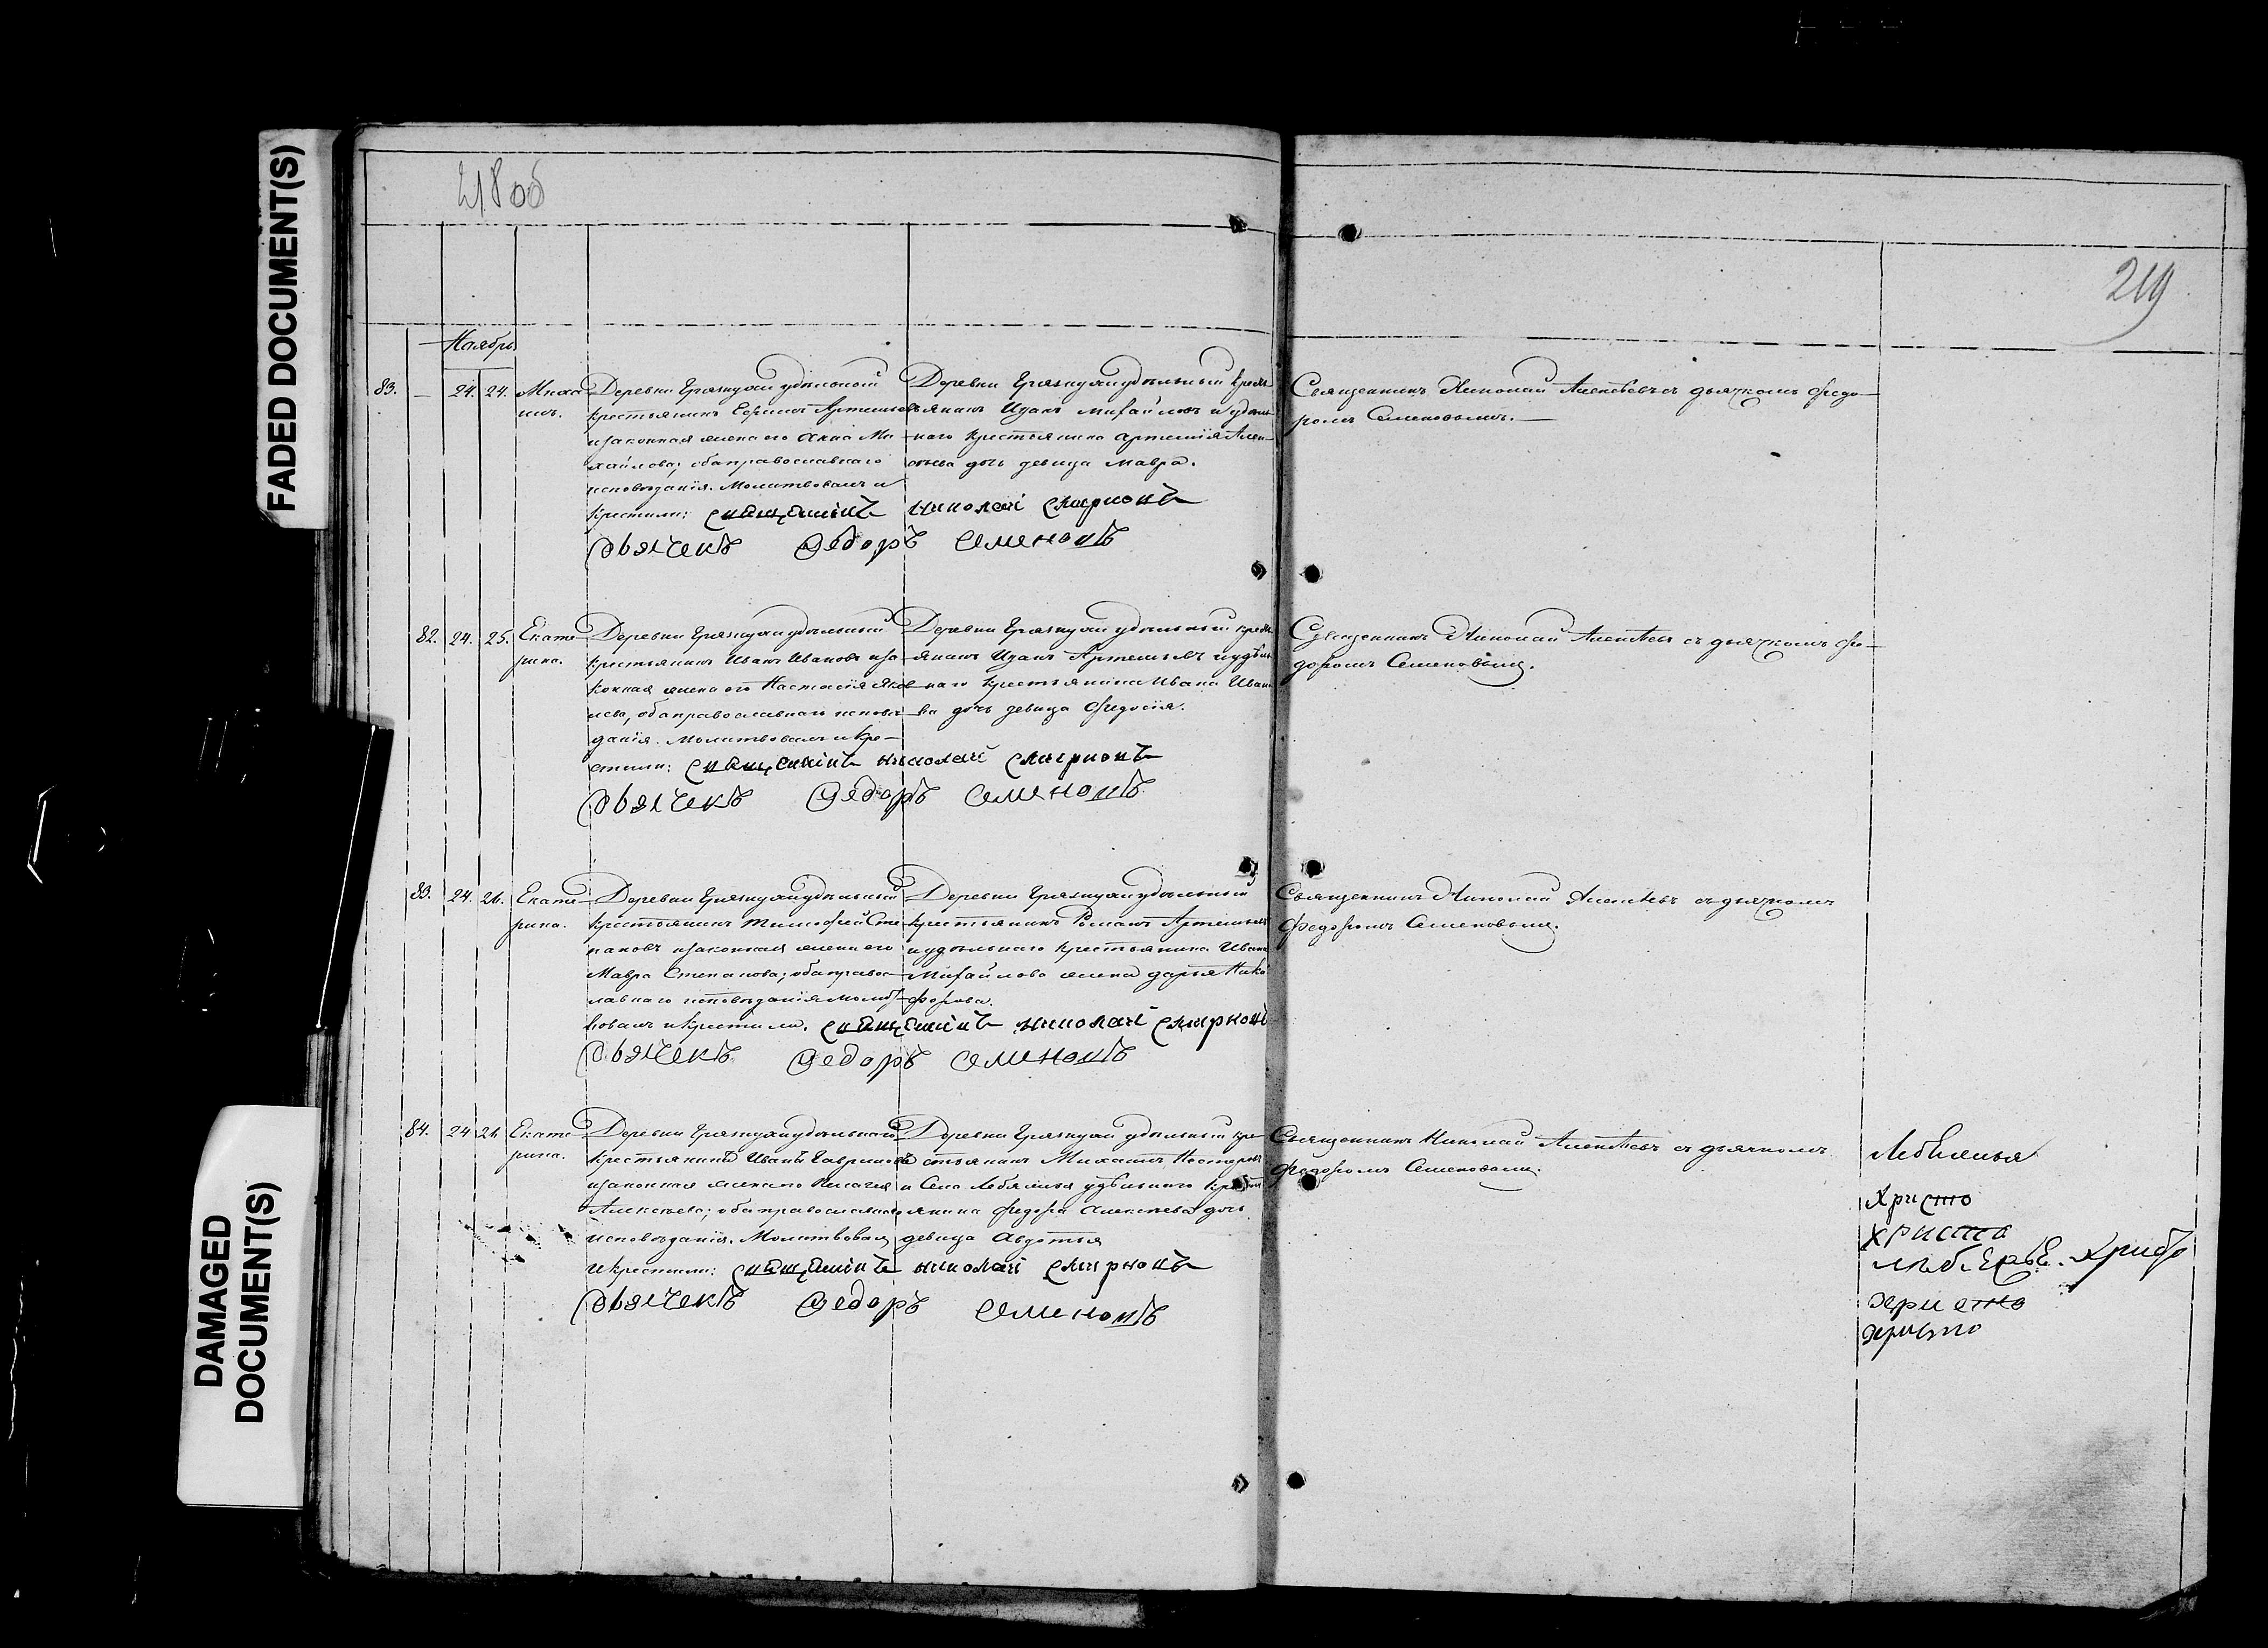 FADED DOCUMENT(S)
DAMAGED DOCUMENT(S)
218 об
219
Ноябрь
83. — 24. 24. Миха
илъ.
Деревни Грязнухи удѣльный
крестьянинъ Ефимъ Артемьевъ
изаконная жена его Анна Ми
хайлова; оба православнаго
исповѣданія. Молитвовалъ и
крестили: священникъ Николай Смирновъ
дьячекъ Федоръ Семеновъ
Деревни Грязнухи удѣльный крест
янинъ Иванъ Михайловъ и удѣль
наго крестьянина Артемія Алек
сѣева дочь девица Мавра.
Священникъ Николай Алексѣевъ съ дьячкомъ Федо
ромъ Семеновымъ.
82. 24. 25. Екате
рина.
Деревни Грязнухи удѣльный
крестьянинъ Иванъ Ивановъ иза
конная жена его Настасія Яков
лева, оба православнаго исповѣ
данія. Молитвовалъ и кре
стили: священникъ Николай Смирновъ
дьячекъ Федоръ Семеновъ
Деревни Грязнухи удѣльный крест
янинъ Иванъ Артемьевъ иудѣль
наго крестьянина Ивана Ивано
ва дочь девица Федосія.
Священникъ Николай Алексѣевъ съ дьячкомъ Фе
доромъ Семеновымъ.
83. 24. 26. Екате
рина.
Деревни Грязнухи удѣльный
крестьянинъ Тимофей Сте
пановъ изаконная жена его
Мавра Степанова; оба правос
лавнаго исповѣданія молит
вовалъ и крестили. священникъ Николай Смирновъ
дьячекъ Федоръ Семеновъ
Деревни Грязнухи удѣльный
крестьянинъ Романъ Артемьевъ
иудѣльнаго крестьянина Ивана
Михайлова жена Дарья Ники
форова.
Священникъ Николай Алексѣевъ съ дьячкомъ
Федоромъ Семеновымъ.
84. 24 26 Екате
рина.
Деревни Грязнухи удѣльнаго
крестьянина Ивана Гаврилова
изаконная жена его Пелагея
Алексѣева; оба православнаго
исповѣданія. Молитвовалъ
и крестили: священникъ Николай Смирновъ
дьячекъ Федоръ Семеновъ
Деревни Грязнухи удѣльный кре
стьянинъ Михаилъ Нестеровъ
и Села Лебяжья удѣльнаго крест
янина Федора Алексѣева дочь
девица Авдотья
Священникъ Николай Алексѣевъ съ дьячкомъ
Федоромъ Семеновымъ.
Лебяжья
Христо
Христо
христо
христо